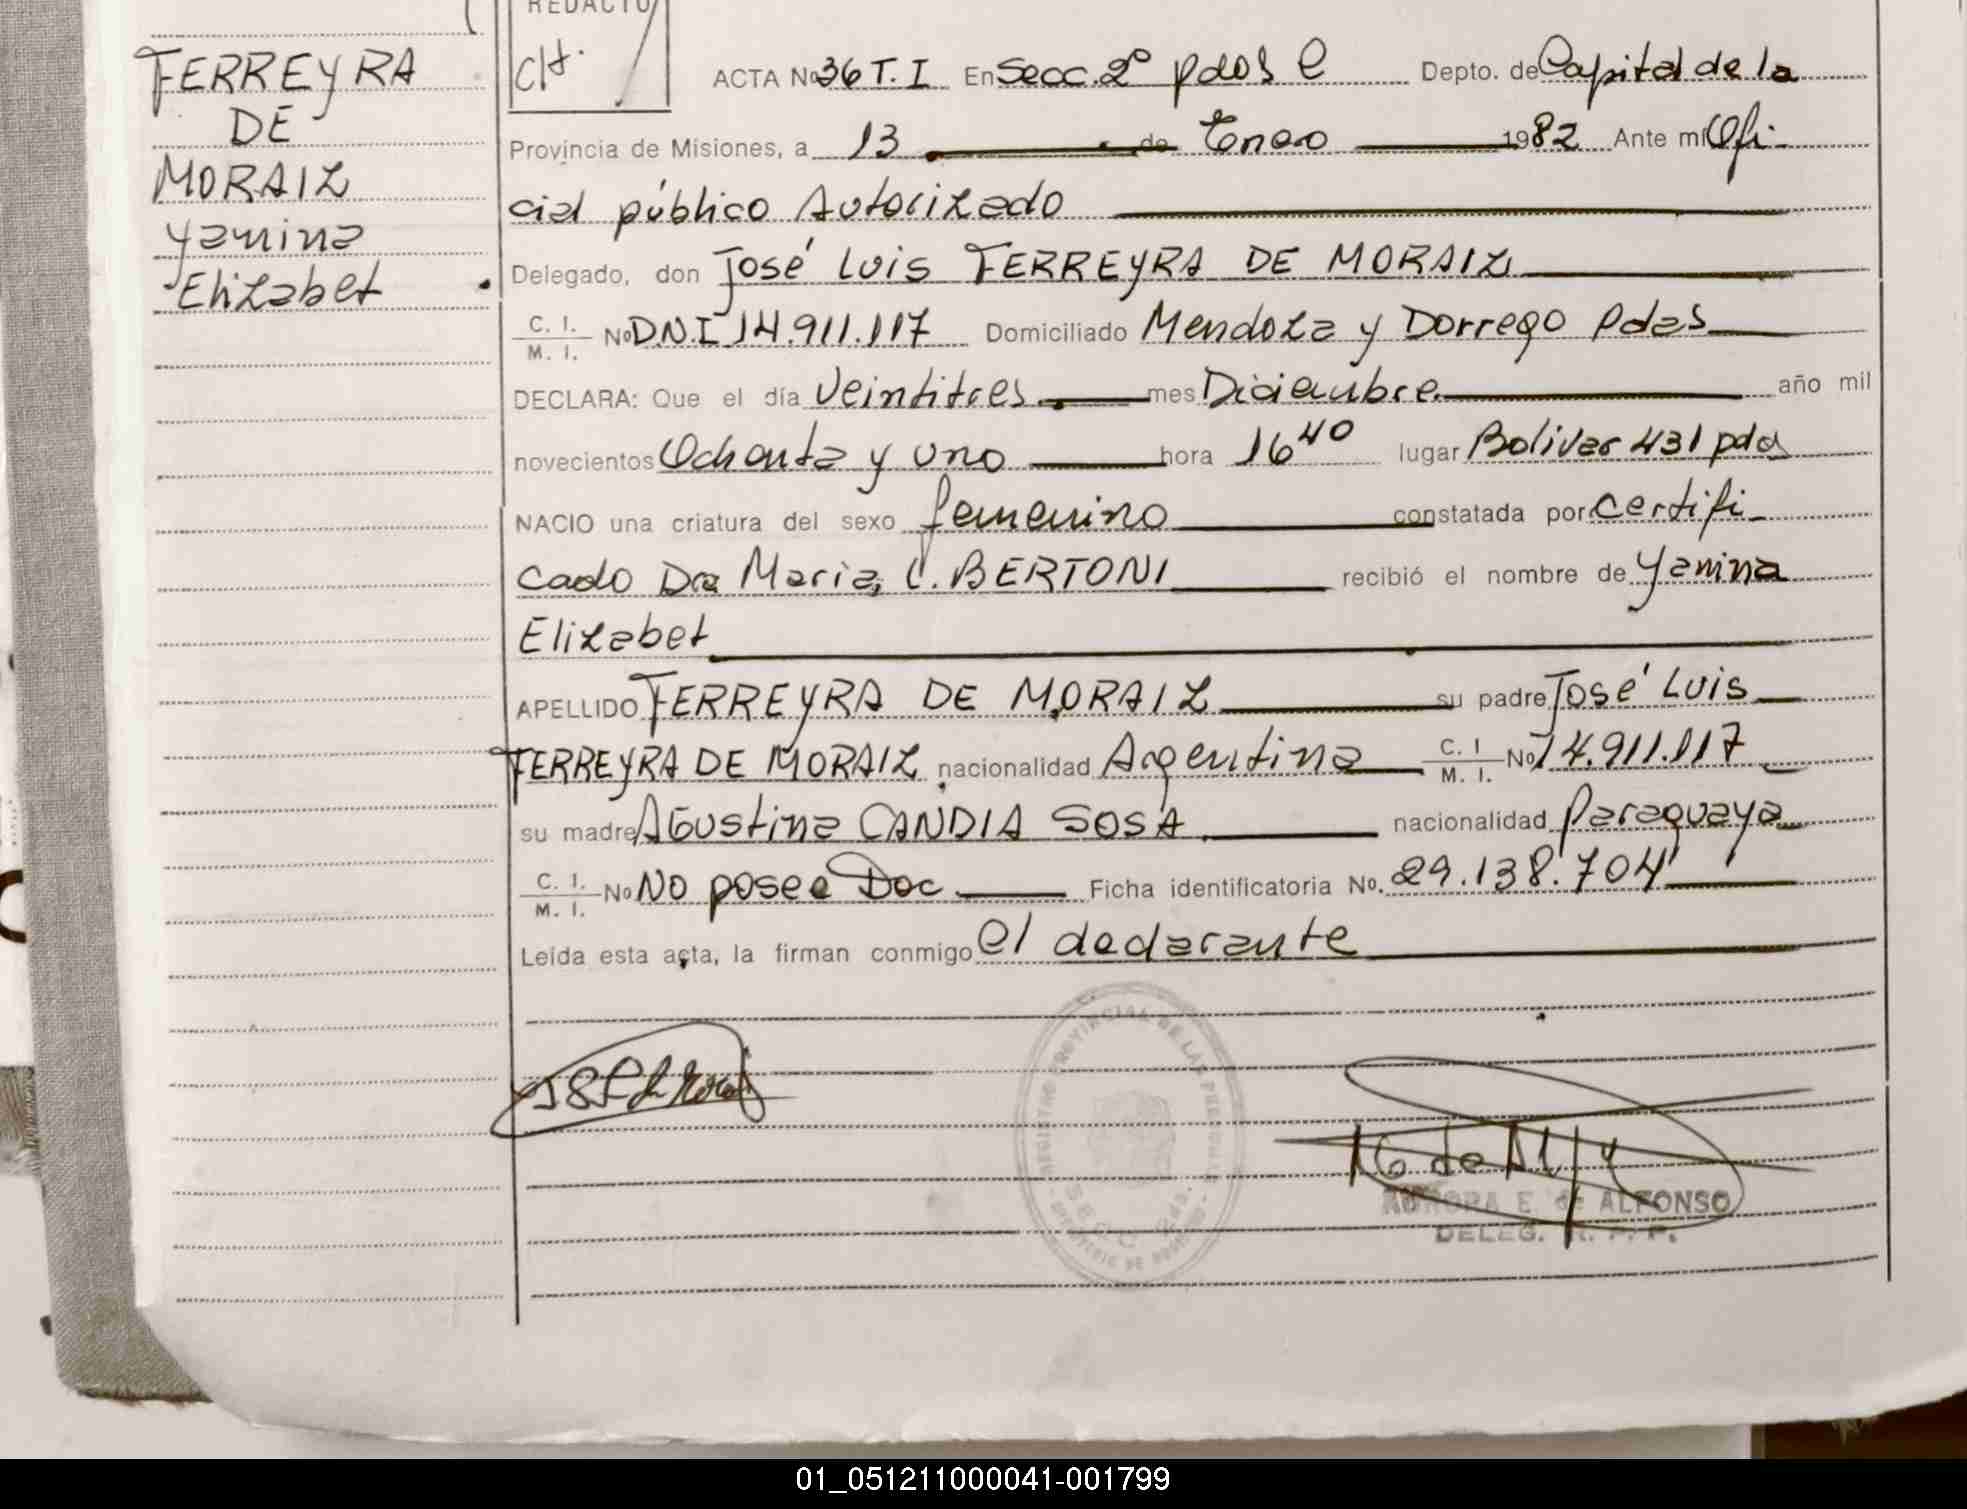 REDACTO
FERREYRA
DE
MORAIZ
Yanina
Elizabet
ACTA No 36 T. I En Secc. 2º pdas Depto. de Capital de la
Provincia de Misiones, a 13 de Enero 1982 Ante mi Ofi-
cial público Autorizado
Delegado, don José Luis FERREYRA DE MORAIZ
C. I. / M. I. No D.N.I 14.911.117 Domiciliado Mendoza y Dorrego Pdas
DECLARA: Que el día Veintitres mes Diciembre año mil
novecientos Ochenta y uno hora 16 40 lugar Bolivar 431 pdas
NACIO una criatura del sexo femenino constatada por certifi-
cado Dra Maria, C. BERTONI recibió el nombre de Yanina
Elizabet
APELLIDO FERREYRA DE MORAIZ su padre José Luis
FERREYRA DE MORAIZ nacionalidad Argentina C. I / M. I. No 14.911.117
su madre Agustina CANDIA SOSA nacionalidad Paraguaya
C. I. / M. I. No No posee Doc Ficha identificatoria No. 29.138.704
Leída esta acta, la firman conmigo el declarante
REGISTRO PROVINCIAL DE LAS PERSONAS
AURORA E. de ALFONSO
DELEG. R. P. P.
01_051211000041-001799